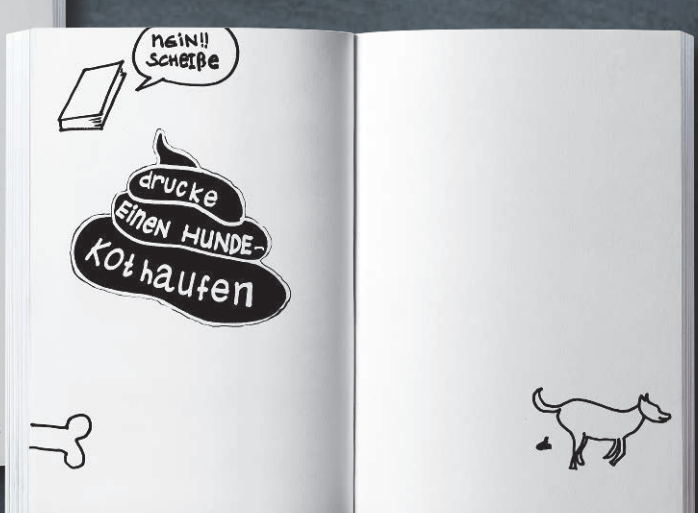 NEiN!!
SCHEIßE
drucke
EiNEN HUNDE-
KOthaufen